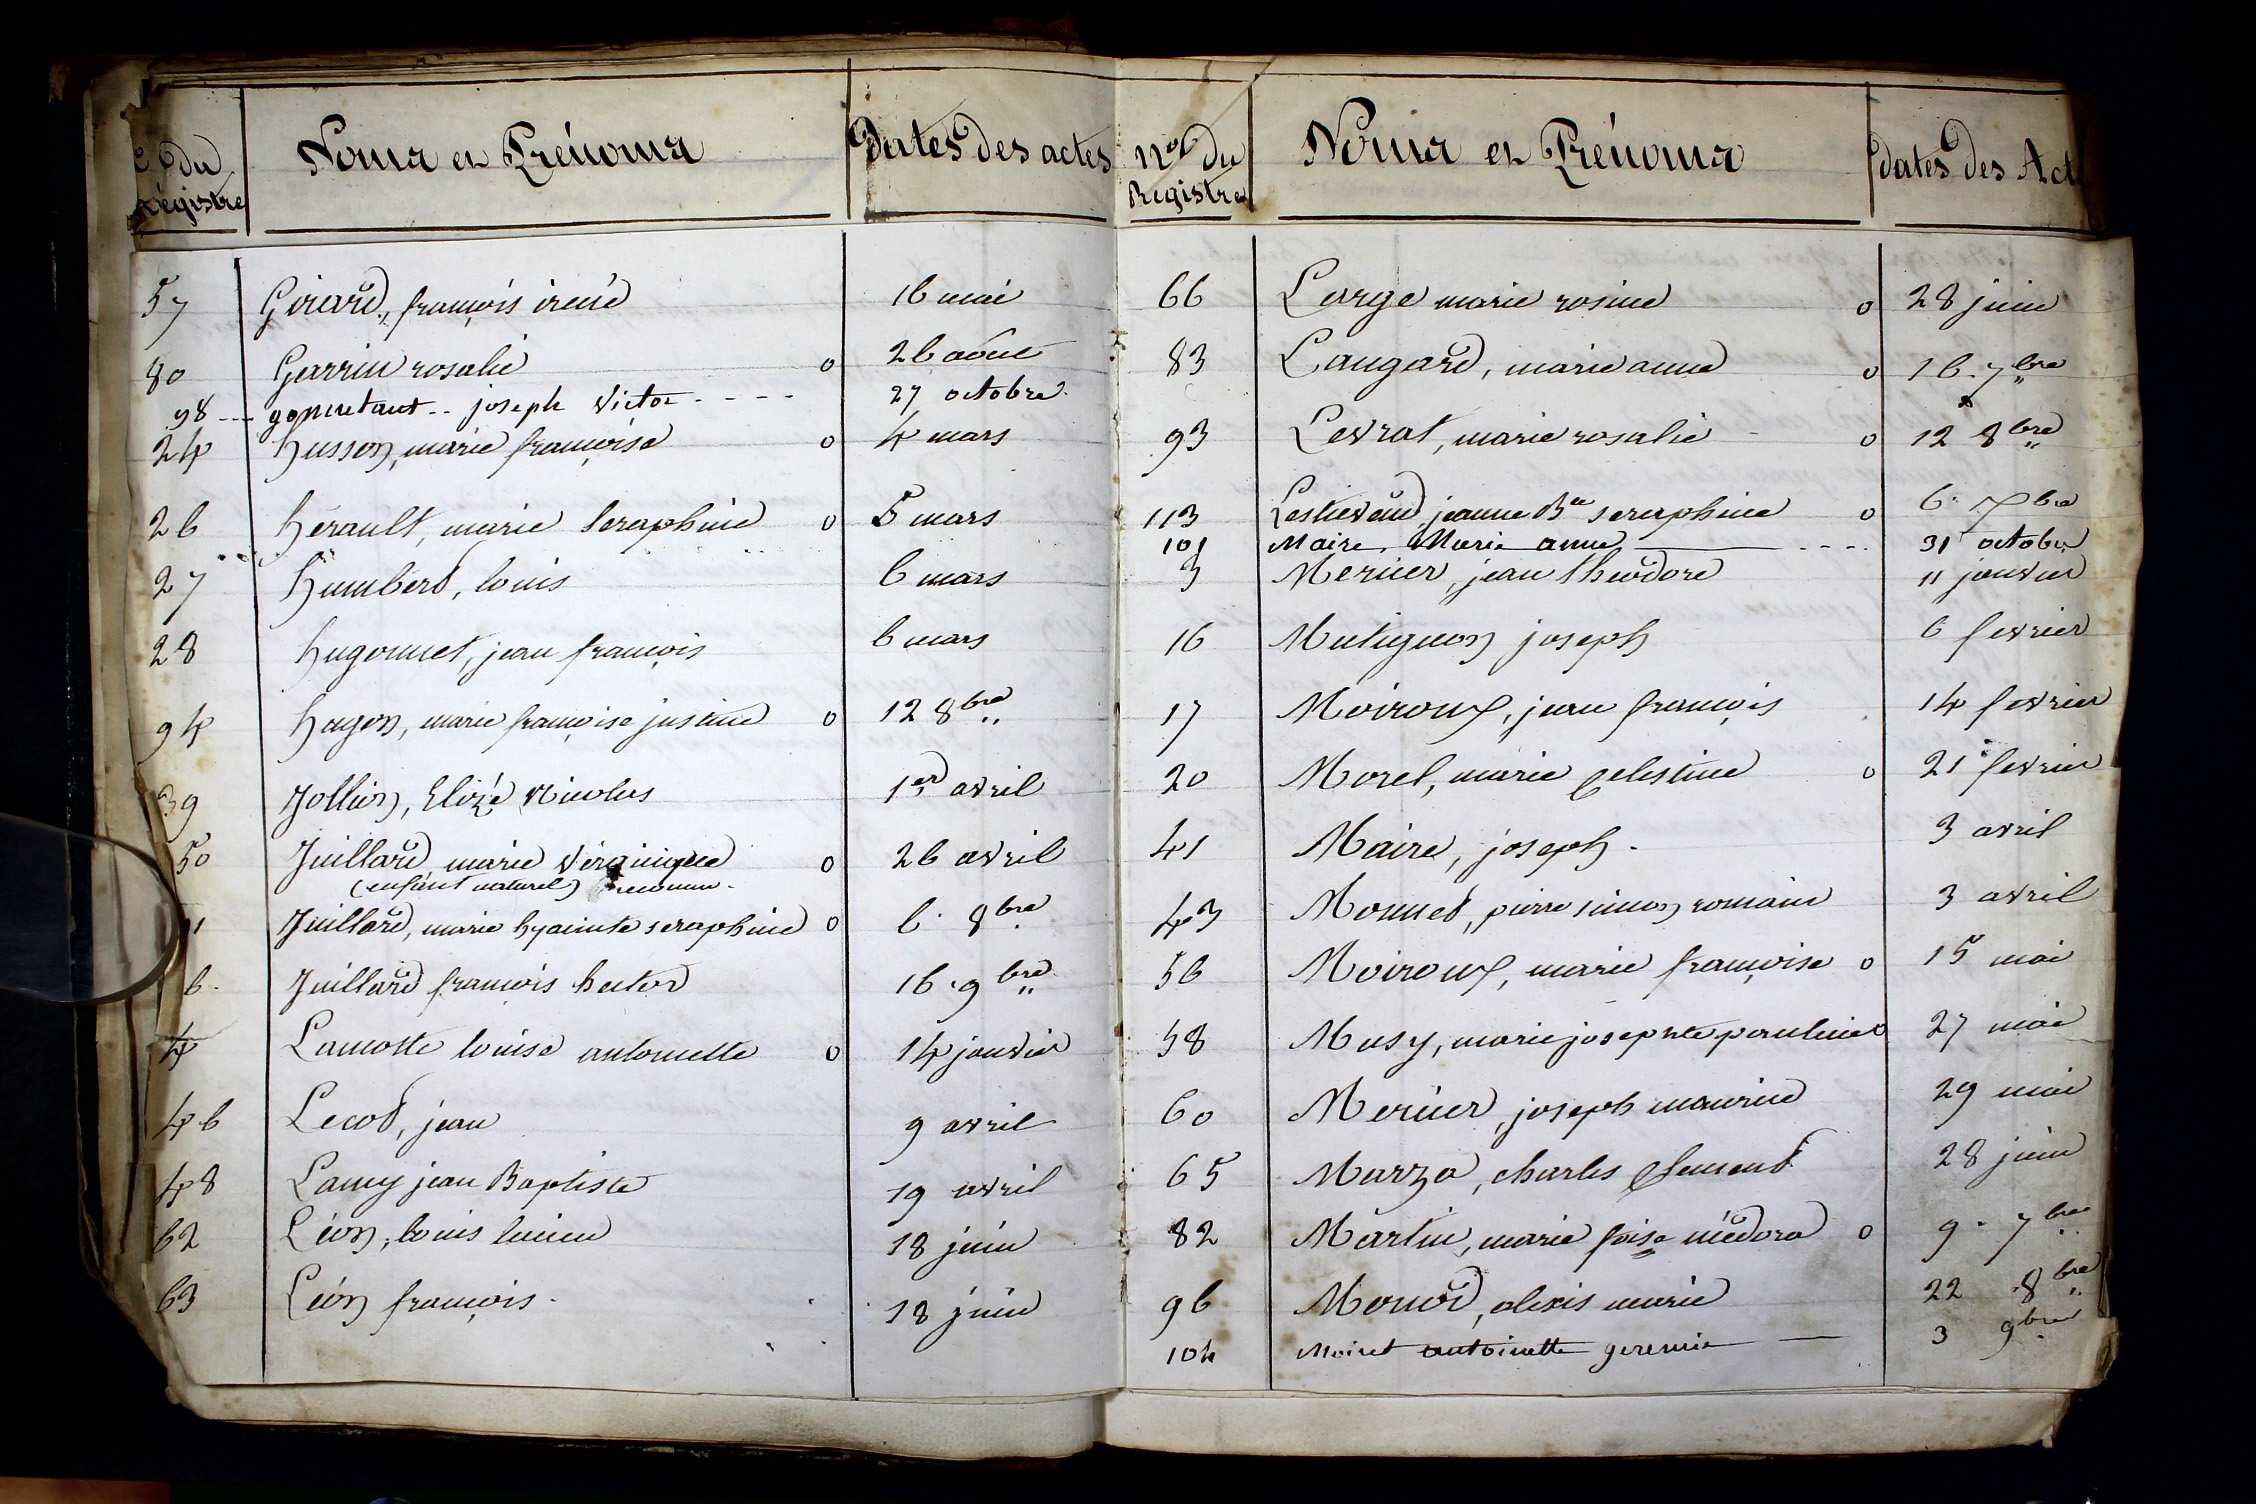 du Régistre
Noms et Prénoms
Dates des actes
57 Girard, françois irené 16 mai
80 Garrin rosalie o 26 août
98 --- joseph Victor - - - - 27 octobre.
24 husson, marie françoise o 4 mars
26 hérault, marie Seraphine o 5 mars
27 humbert, louis 6 mars
28 hugonnet, jean françois 6 mars
94 hagon, marie françoise justine o 12 8bre
39 Jollion, Elizé Nicolas 1er avril
50 Juillard marie Véronique o 26 avril
(enfant naturel) reconnu.
1 Juillard, marie hyacinte seraphine o 6. 8bre
6. Juillard françois hector 16. 9bre
4 Lamotte louise antoinette o 14 janvier
46 Lecot, jean 9 avril
48 Lamy jean Baptiste 19 avril
62 Léon, louis lucien 18 juin
63 Léon françois. 18 juin
nos du Registre
Noms et Prénoms
dates des Act
66 Large marie rosine o 28 juin
83 Laugard, marie anne o 16. 7bre
93 Levrat, marie rosalie o 12 8bre
113 jeanne Bte seraphine o 6. Xbre
101 Maire. Marie anne - - - - 31 octobre
3 Mercier, jean théodore 11 janvier
16 Mutignon joseph 6 fevrier
17 Moiroux, jean françois 14 fevrier
20 Morel, marie celestine o 21 fevrier
41 Maire, joseph. 3 avril
43 Monnet, pierre simon romain 3 avril
56 Moiroux, marie françoise o 15 mai
58 Musy, marie josephte pauline o 27 mai
60 Mercier, joseph maurice 29 mai
65 Marza, charles Clement 28 juin
82 Martin, marie foise médora o 9. 7bre
96 Monod, alexis marie 22 8bre
104 Moiret antoinette geremie — 3 9bre